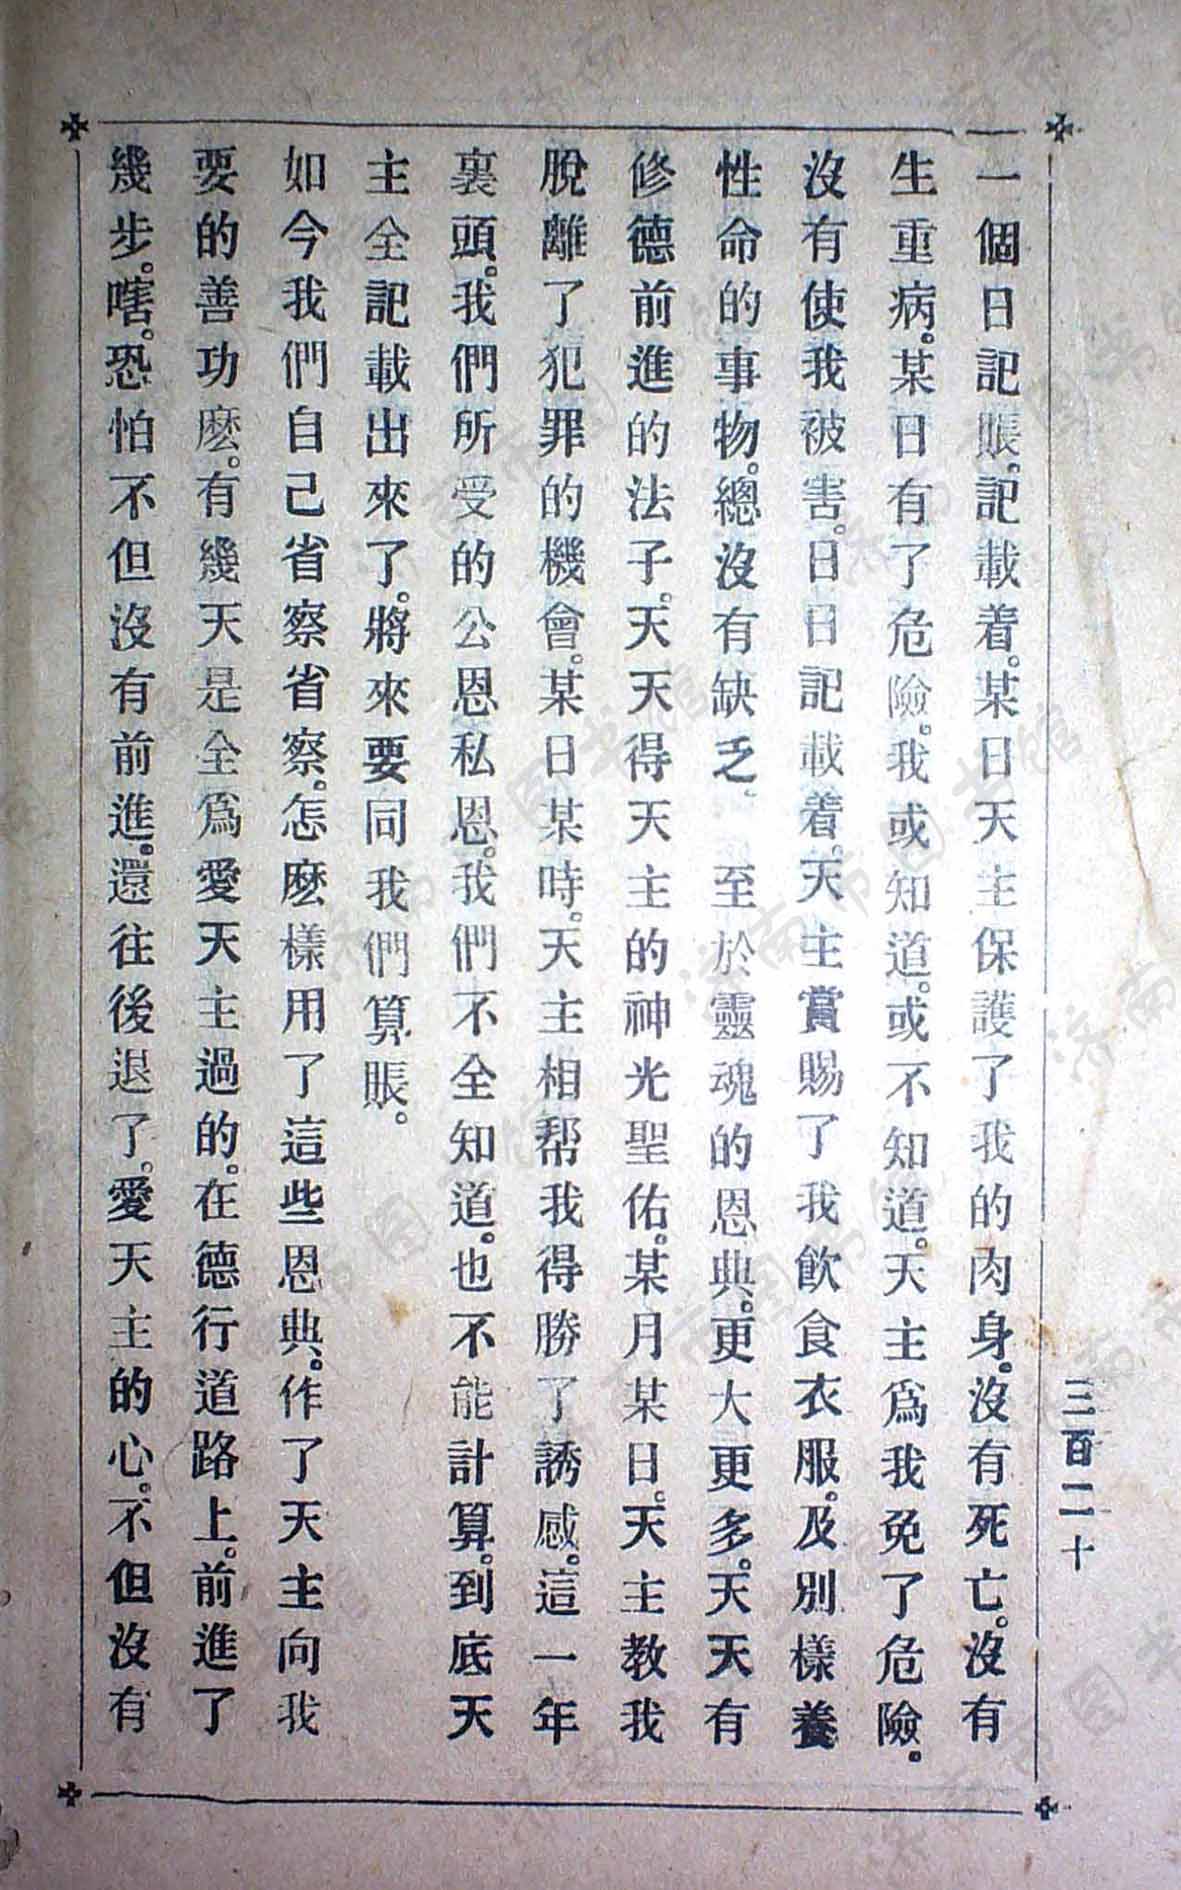 三百二十
一個日記賬。記載着。某日天主保護了我的肉身。沒有死亡。沒有
生重病。某日有了危險。我或知道。或不知道。天主爲我免了危險。
沒有使我被害。日日記載着。天主賞賜了我飲食衣服。及別樣養
性命的事物。總沒有缺乏。 至於靈魂的恩典。更大更多。天天有
修德前進的法子。天天得天主的神光聖佑。某月某日。天主教我
脫離了犯罪的機會。某日某時。天主相帮我得勝了誘感。這一年
裏頭。我們所受的公恩私恩。我們不全知道。也不能計算。到底天
主全記載出來了。將來要同我們算賬。
如今我們自己省察省察。怎麽樣用了這些恩典。作了天主向我
要的善功麽。有幾天是全爲愛天主過的。在德行道路上。前進了
幾步。嗐。恐怕不但沒有前進。還往後退了。愛天主的心。不但沒有
济南市图书馆